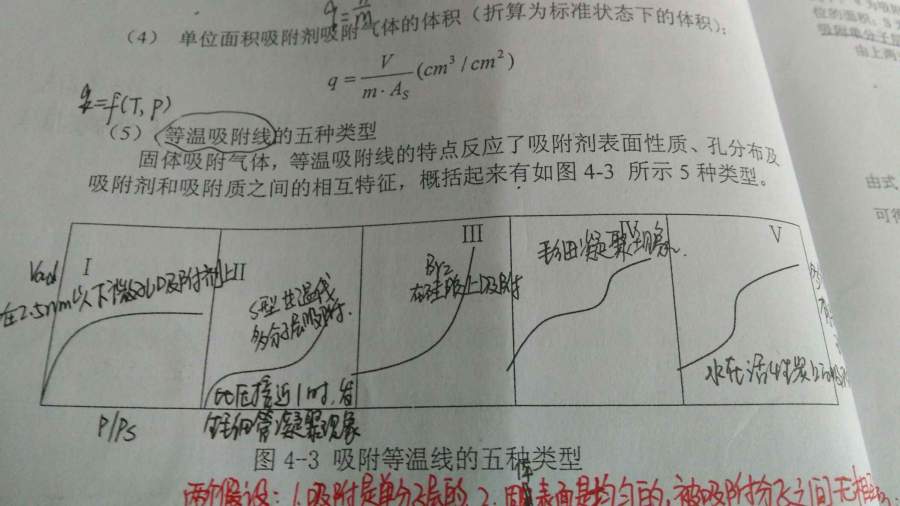 q = n/m
（4） 单位面积吸附剂吸附气体的体积（折算为标准状态下的体积）：
q = V/(m·A_S) (cm³/cm²)
q=f(T, P)
（5） 等温吸附线的五种类型
固体吸附气体，等温吸附线的特点反应了吸附剂表面性质、孔分布及
吸附剂和吸附质之间的相互特征，概括起来有如图 4-3 所示 5 种类型。
I
II
III
IV
V
在2.5nm以下微孔吸附剂上
S型等温线
多分子层吸附.
比压接近1时,有
毛细管凝聚现象
Br2
在硅胶上吸附
毛细凝聚现象
水在活性炭上
P/Ps
图 4-3 吸附等温线的五种类型
两个假设：1.吸附是单分子层的. 2.固体表面是均匀的,被吸附分子之间无相
位的面积；S
吸附单分子层
由上两
由式
可得